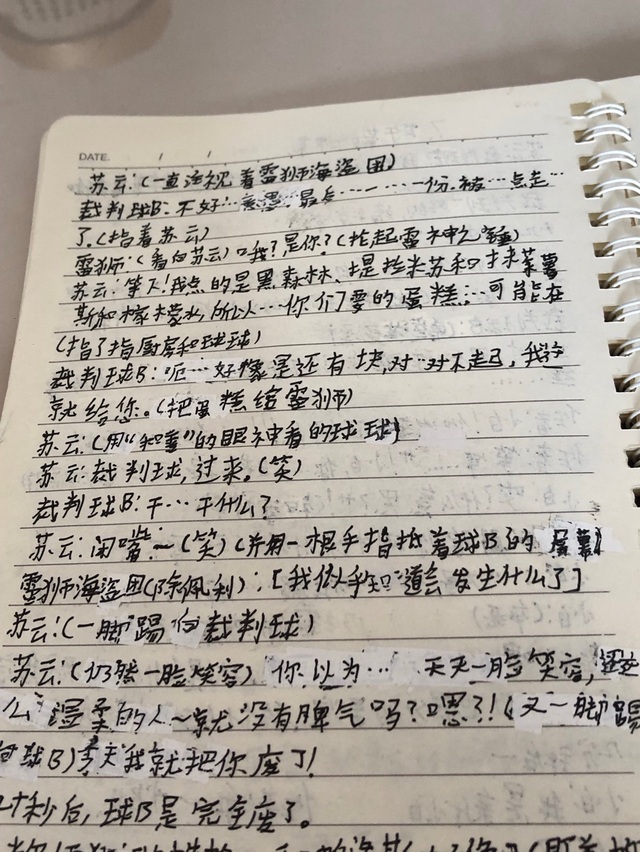 DATE. / /
苏云:(一直注视着雷狮海盗团)
裁判球B:不好……最后……一……一份.被…点走…
了.(指着苏云)
雷狮:(看向苏云)口我?是你?(抡起雷神之锤)
苏云:等下!我点的是黑森林、提拉米苏和
斯和柠檬水,所以…你们要的蛋糕……可能在
(指了指厨房和球球)
裁判球B:呃…好像是还有块,对…对不起,我
就给您。(把蛋糕给雷狮)
苏云:(用“和善”的眼神看的球球)
苏云:裁判球,过来。(笑)
裁判球B:干…干什么?
苏云:闭嘴~(笑)(并用一根手指抵着球B的
雷狮海盗团(除佩利):[我似乎知道会发生什么了]
苏云:(一脚踢向裁判球)
苏云:(仍然一脸笑容)你以为…天天一脸笑容,
么温柔的人~就没有脾气吗?嗯?!(又一脚踢
向球B)今天我就把你废了!
十秒后,球B是完全废了。